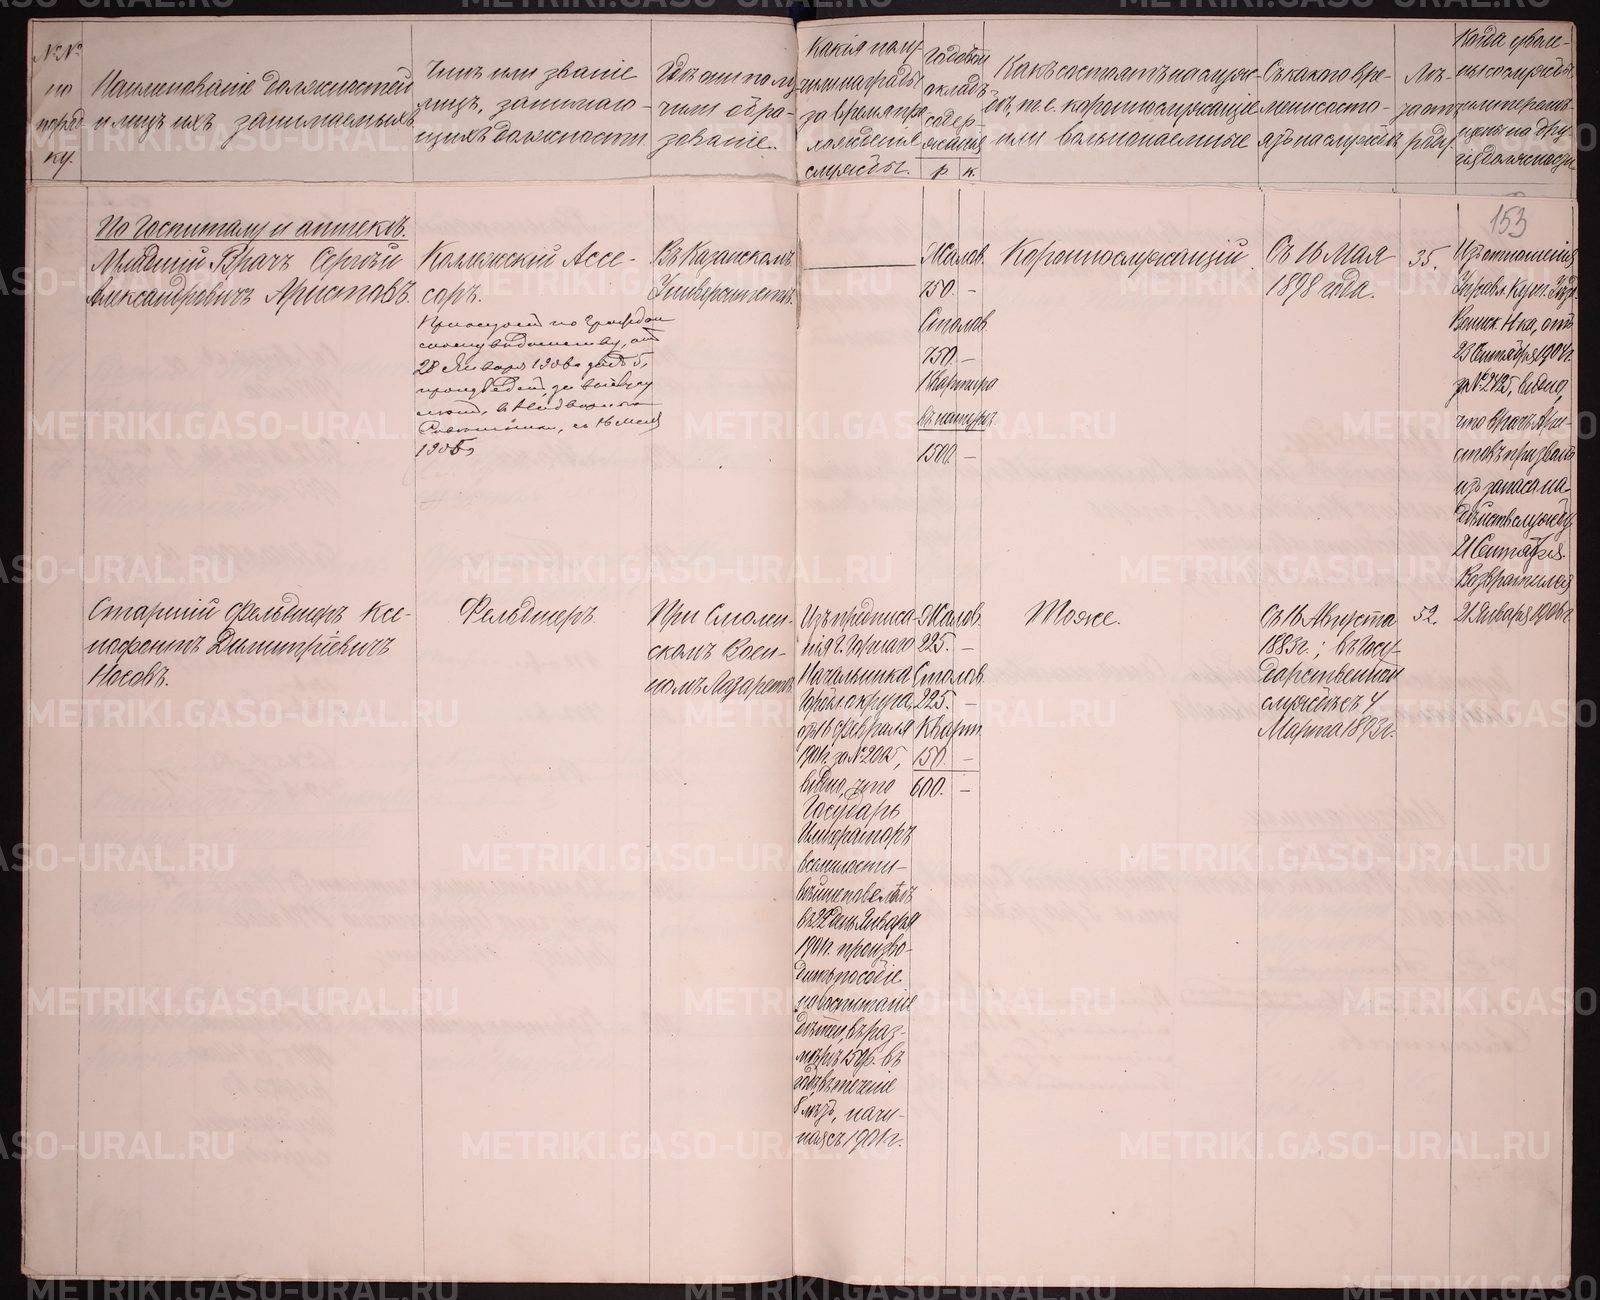 №№
по
поряд-
ку.
Наименованіе должностей
и лицъ ихъ занимаемыхъ
Чинъ или званіе
лицъ, занимаю-
щихъ должности
Гдѣ они полу
чили обра-
зованіе.
Какія полу-
чили награды
за время про
хожденія
службы.
Годовой
окладъ
содер
жанія
р. к.
Какъ состоятъ на служ-
бѣ, т.е. короннослужащіе
или вольнонаемные
Съ какого вре-
мени состо-
ятъ на службѣ
Лѣ-
та отъ
роду
Когда уволе-
ны со службы
или перемѣ-
щены на дру-
гія должности
153
По Госпиталю и аптекѣ.
Младшій Врачъ Сергѣй
Александровичъ Аристовъ.
Коллежскій Ассе-
соръ.
28 Января 1906 г. за № 5,
произведенъ за выслугу
лѣтъ, въ Надворные
Совѣтники, съ 16 Мая
1905 г.
Въ Казанскомъ
Университетѣ.
Жалов.
750. –
Столов.
750. –
Квартира
въ натурѣ.
1500. –
Короннослужащій
Съ 16 Мая
1898 года.
35.
Изъ отношенія
Воинск. Н-ка, отъ
25 Сентября 1904 г.
за № 2425, видно,
что врачъ Ари-
стовъ призванъ
изъ запаса на
дѣйств. службу
21 Сентября.
Возвратился
21 Января 1906 г.
Старшій Фельдшеръ Ксе-
нофонтъ Димитріевичъ
Носовъ.
Фельдшеръ.
При Смолен-
скомъ Воен-
номъ Лазаретѣ.
Изъ предписа-
нія г. Горнаго
Начальника
Горн. округа,
отъ 16 Февраля
1901 г. за № 2005,
видно, что
Государь
Императоръ
всемилости-
вѣйше повелѣлъ
въ 22 день Января
1901 г. произво-
дить пособіе
на воспитаніе
дѣтей, въ раз-
мѣрѣ 150 р. въ
годъ въ теченіе
8 лѣтъ, начи-
ная съ 1901 г.
Жалов.
225. –
Столов.
225. –
Кварт.
150. –
600. –
Тоже.
Съ 16 Августа
1883 г.; въ Госу-
дарственной
службѣ съ 4
Марта 1893 г.
52.
METRIKI.GASO-URAL.RU